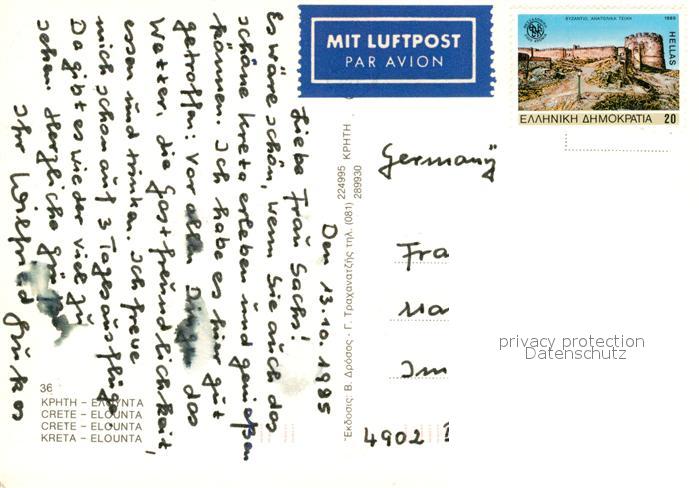 Den 13.10.1985
Liebe Frau Sachs!
Es wäre schön, wenn Sie auch das
schöne Kreta erleben und genießen
können. Ich habe es hier gut
getroffen: Vor allen Dingen das
Wetter, die Gastfreundlichkeit,
essen und trinken. Ich freue
mich schon auf 3 Tagesausflüge.
Da gibt es wieder viel zu
sehen. Herzliche Grüße
Ihr Wilfried
36
ΚΡΗΤΗ - ΕΛΟΥΝΤΑ
CRETE - ELOUNTA
CRETE - ELOUNTA
KRETA - ELOUNTA
Έκδοσις: Β. Δρόσος - Γ. Τραχανατζής τηλ. (081) 224995 ΚΡΗΤΗ
289930
MIT LUFTPOST
PAR AVION
ΒΥΖΑΝΤΙΟ, ΑΝΑΤΟΛΙΚΑ ΤΕΙΧΗ
HELLAS
ΕΛΛΗΝΙΚΗ ΔΗΜΟΚΡΑΤΙΑ 20
Germany
Fra
Ma
Im
4902
privacy protection
Datenschutz